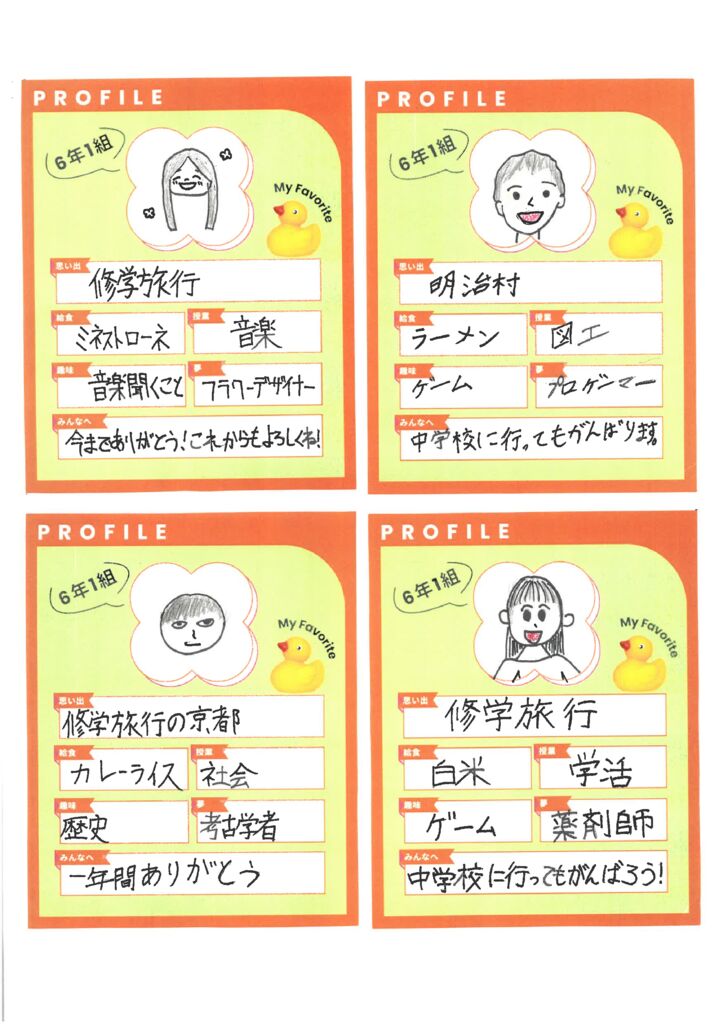 PROFILE
6年1組
My Favorite
思い出
修学旅行
給食
ミネストローネ
授業
音楽
趣味
音楽聞くこと
夢
フラワーデザイナー
みんなへ
今までありがとう!これからもよろしくね!
PROFILE
6年1組
My Favorite
思い出
明治村
給食
ラーメン
授業
図工
趣味
ゲーム
夢
プロゲーマー
みんなへ
中学校に行ってもがんばります。
PROFILE
6年1組
My Favorite
思い出
修学旅行の京都
給食
カレーライス
授業
社会
趣味
歴史
夢
考古学者
みんなへ
一年間ありがとう
PROFILE
6年1組
My Favorite
思い出
修学旅行
給食
白米
授業
学活
趣味
ゲーム
夢
薬剤師
みんなへ
中学校に行ってもがんばろう!